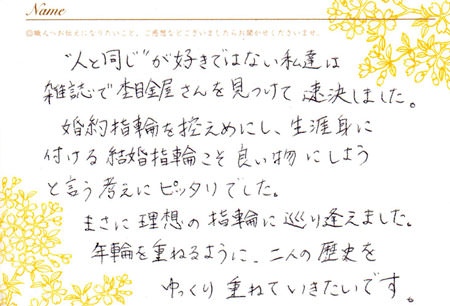 Name
◎職人へお伝えになりたいこと、ご感想などございましたらお聞かせくださいませ。
"人と同じ"が好きではない私達は
雑誌で杢目金屋さんを見つけて速決しました。
婚約指輪を控えめにし、生涯身に
付ける結婚指輪こそ良い物にしよう
と言う考えにピッタリでした。
まさに理想の指輪に巡り逢えました。
年輪を重ねるように、二人の歴史を
ゆっくり重ねていきたいです。